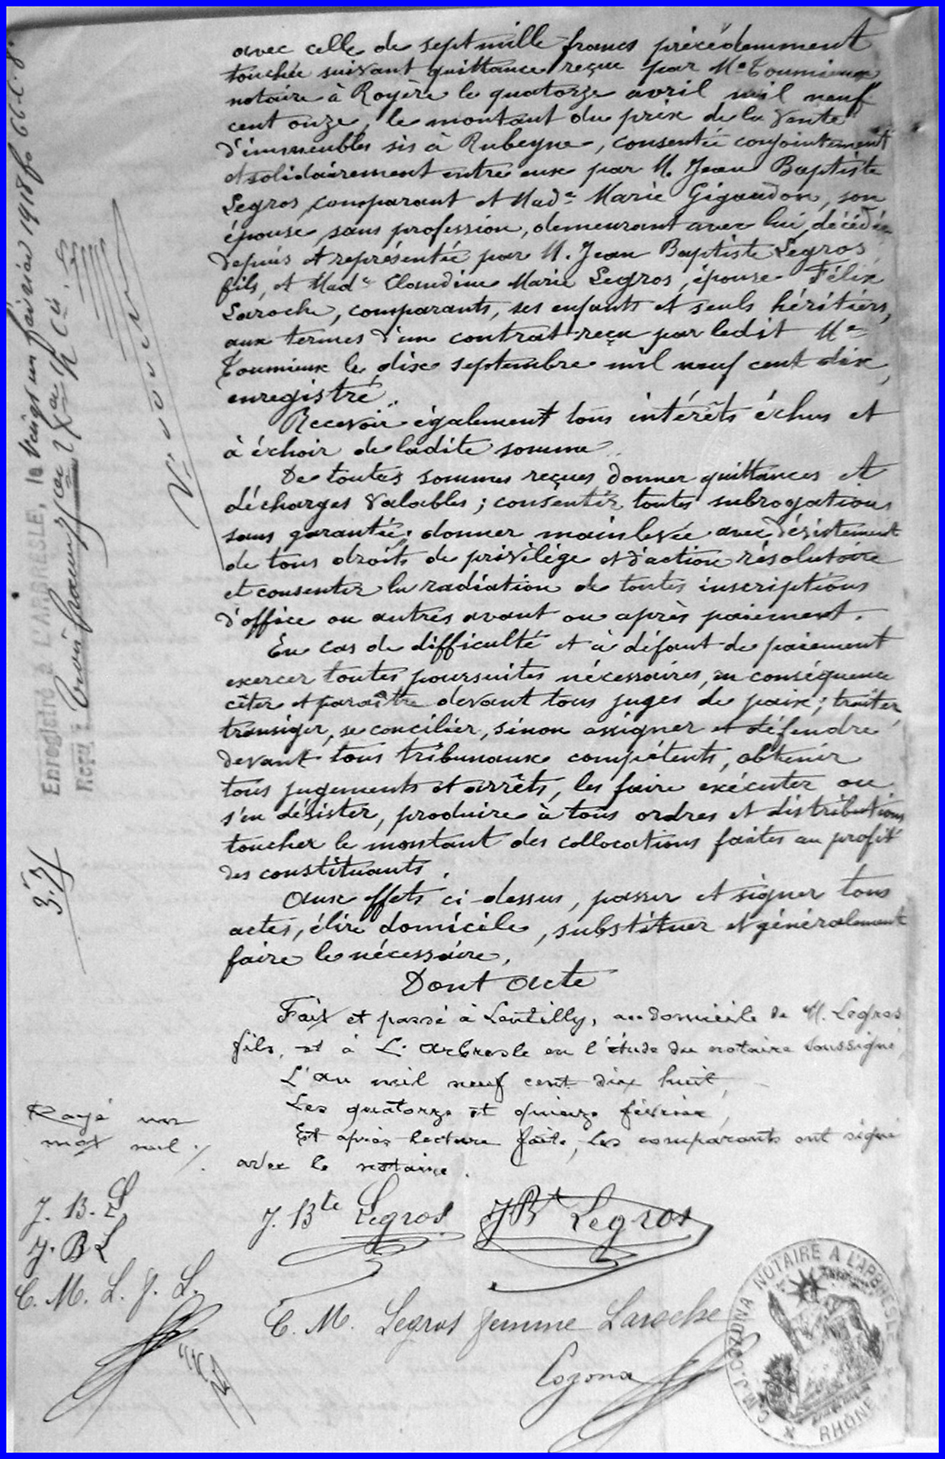 avec celle de sept mille francs précédemment
touchée suivant quittance reçue par Me Toumieux
notaire à Royère le quatorze avril mil neuf
cent onze, le montant du prix de la vente
d'immeubles sis à Rubeyne, consentie conjointement
et solidairement entre eux par M. Jean Baptiste
Legros, comparant et Made Marie Gigaudon, son
épouse, sans profession, demeurant avec lui, décédée
depuis et représentée par M. Jean Baptiste Legros
fils, et Made Claudine Marie Legros, épouse Félix
Laroche, comparants, ses enfants et seuls héritiers,
aux termes d'un contrat reçu par ledit Me
Toumieux le dix septembre mil neuf cent dix,
enregistré.
Recevoir également tous intérêts échus et
à échoir de ladite somme.
De toutes sommes reçues donner quittances et
décharges valables; consentir toutes subrogations
sans garantie; donner mainlevée avec désistement
de tous droits de privilège et d'action résolutoire
et consentir la radiation de toutes inscriptions
d'office ou autres avant ou après paiement.
En cas de difficulté et à défaut de paiement
exercer toutes poursuites nécessaires, en conséquence
citer et paraître devant tous juges de paix; traiter,
transiger, se concilier, sinon assigner et défendre
devant tous tribunaux compétents, obtenir
tous jugements et arrêts, les faire exécuter ou
s'en désister, produire à tous ordres et distributions
toucher le montant des collocations faites au profit
des constituants.
Aux effets ci-dessus, passer et signer tous
actes, élire domicile, substituer et généralement
faire le nécessaire.
Dont acte
Fait et passé à Lentilly, au domicile de M. Legros
fils, et à L'Arbresle en l'étude du notaire soussigné,
L'an mil neuf cent dix huit,
Les quatorze et quinze février,
Et après lecture faite, les comparants ont signé
avec le notaire.
J. Bte Legros JBt Legros
C. M. Legros femme Laroche
Cozona
Rayé un
mot nul
J. B. L
J. B L
C. M. L. f. L.
Enregistré à L'ARBRESLE, le vingt un février 1918 fo 66 c. 8
Reçu : trois francs soixante quinze c.
3.75
C.M.J. COZONA NOTAIRE A L'ARBRESLE
RHÔNE